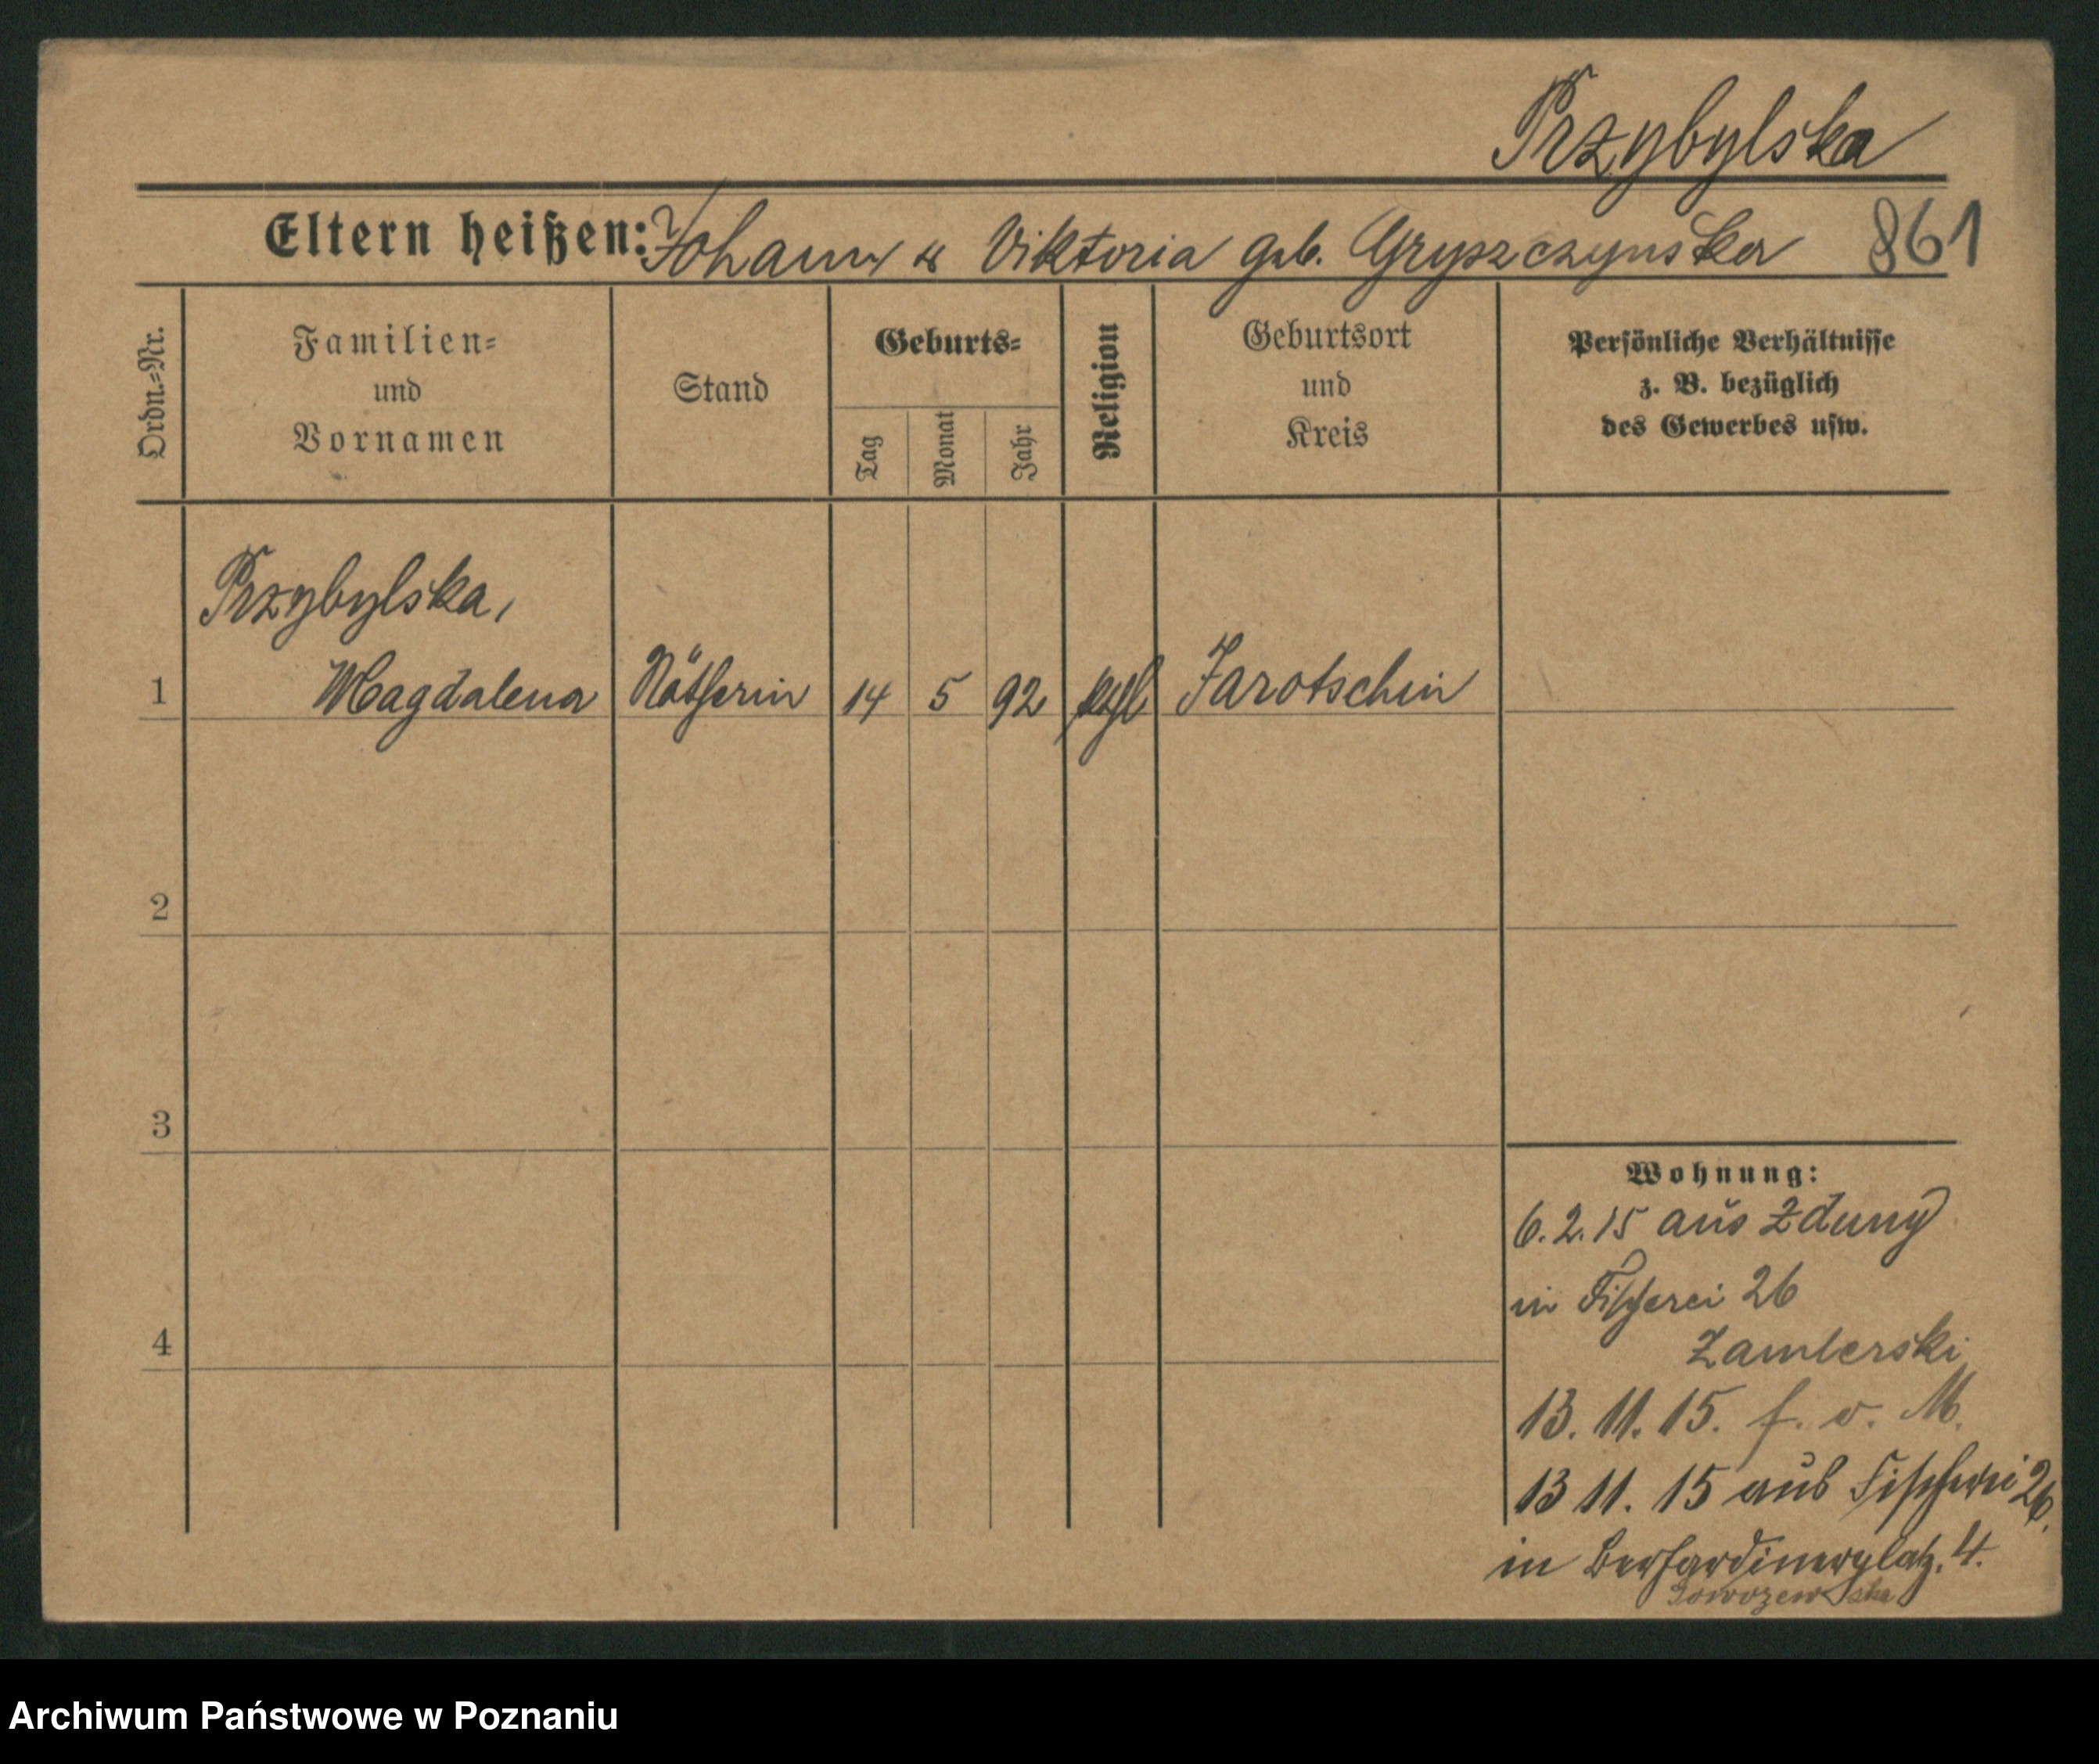 Przybylska
Eltern heißen: Johann & Viktoria geb. Gryszczynska 861
Ordn.=Nr.
Familien=
und
Vornamen
Stand
Geburts=
Tag
Monat
Jahr
Religion
Geburtsort
und
Kreis
Persönliche Verhältnisse
z. B. bezüglich
des Gewerbes usw.
Przybylska,
1 Magdalena Nätherin 14 5 92 Jarotschin
2
3
Wohnung:
6.2.15 aus Zduny
in Fischerei 26
4
Zamlerski
13. 11. 15. f. v. M.
13 11. 15 aus Fischerei 26.
in Bernardinerplatz. 4.
Archiwum Państwowe w Poznaniu